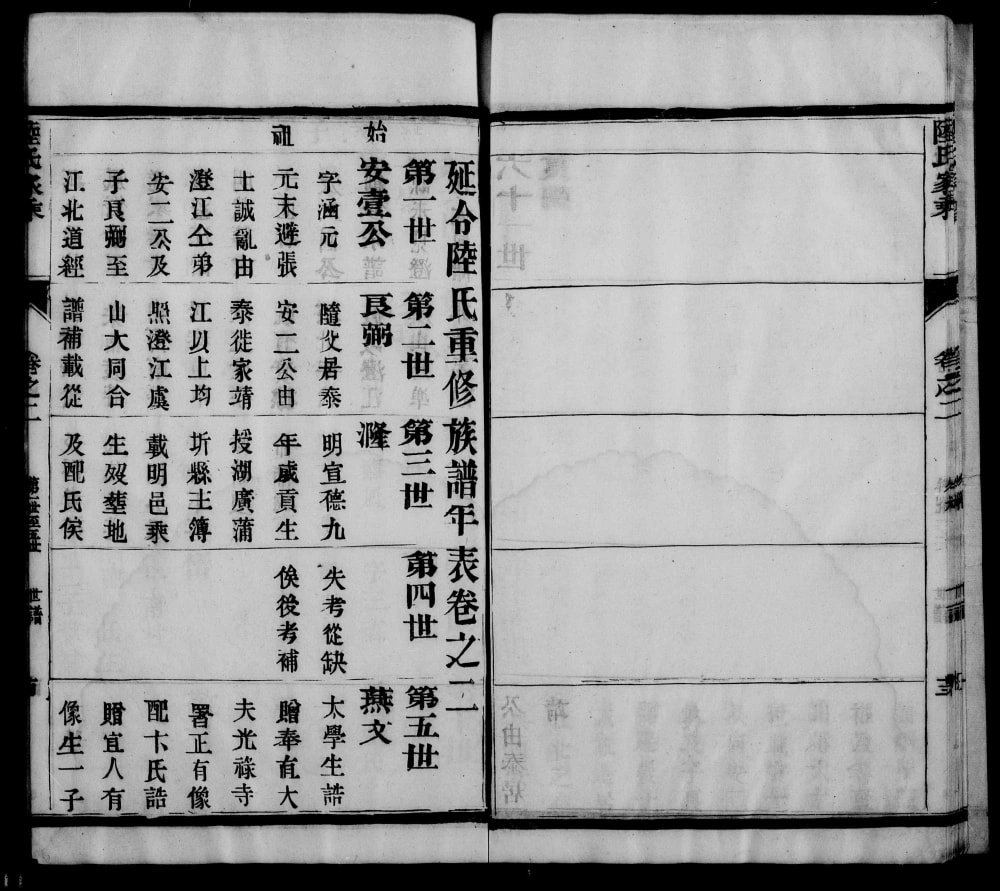 陸氏家乘
卷之二
延令陸氏重修族譜年表卷之二
始祖
第一世
安壹公
字涵元
元末避張
士誠亂由
澄江仝弟
安二公及
子良弼至
江北道經
第二世
良弼
隨父居泰
安二公由
泰徙家靖
江以上均
照澄江虞
山大同合
譜補載從
第三世
漋
明宣德九
年歲貢生
授湖廣蒲
圻縣主簿
載明邑乘
生歿塟地
及配氏俟
第四世
失考從缺
俟後考補
第五世
蕪文
太學生誥
贈奉直大
夫光祿寺
署正有像
配卞氏誥
贈宜人有
像生一子
陸氏家乘
卷之二
世譜